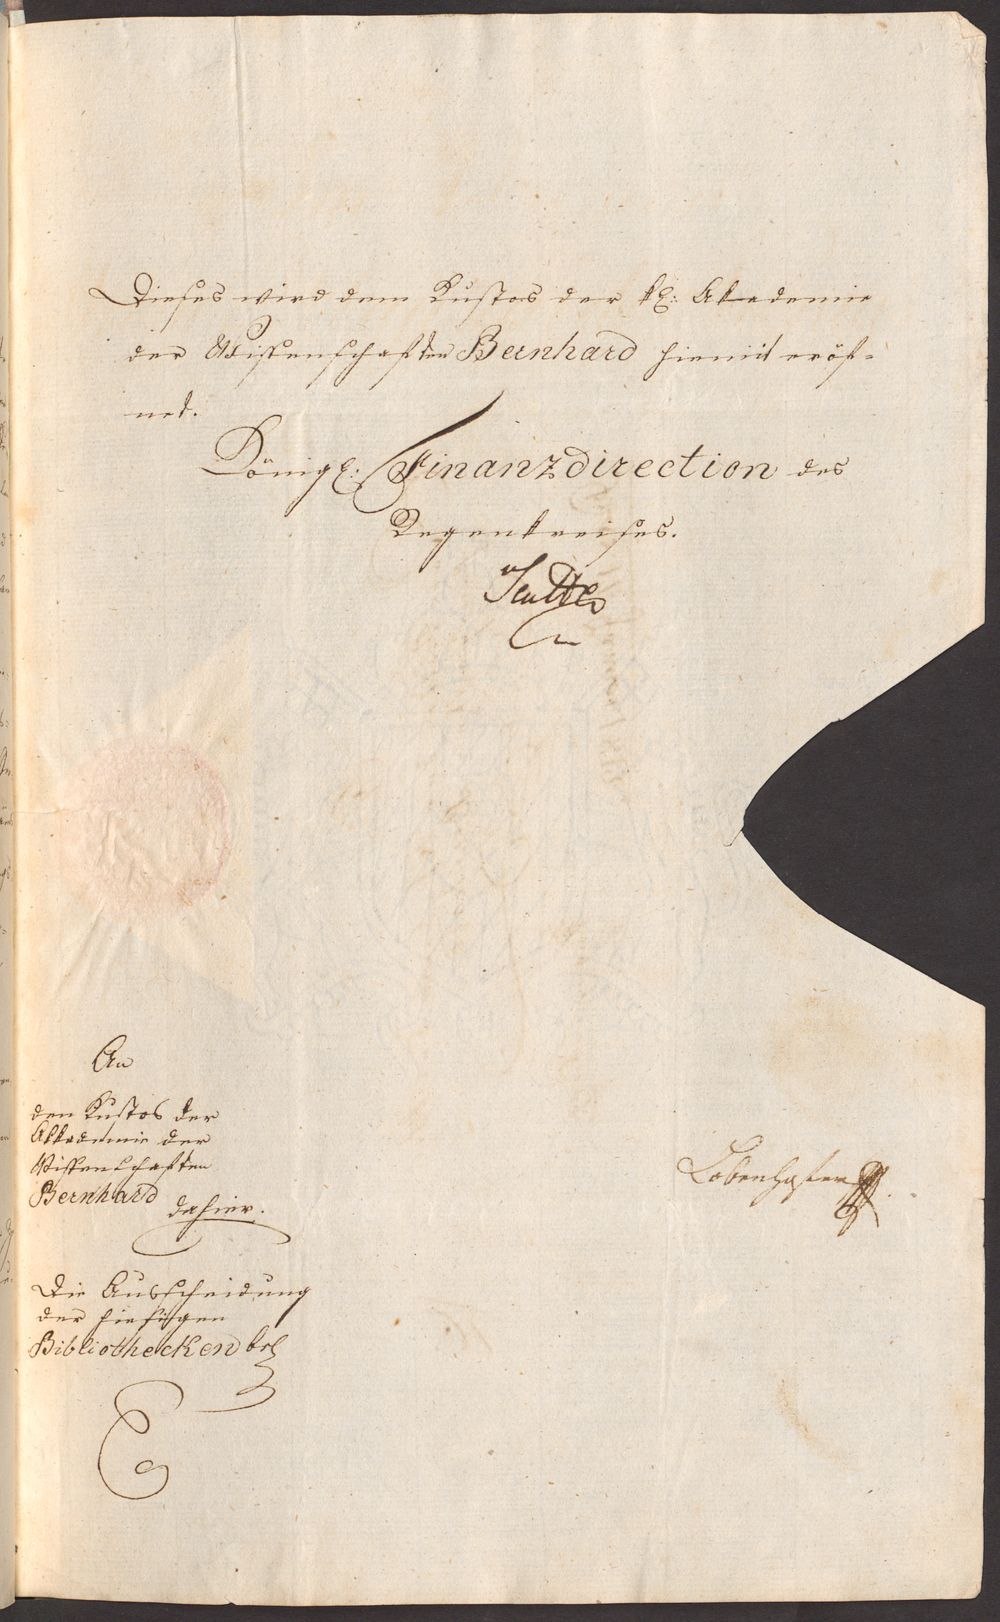 Dieses wird dem Kustos der kl: Akademie
der Wissenschaften Bernhard hiemit eröf-
net.
Königl: Finanzdirection des
Regenkreises.
An
den Kustos der
Akkademie der
Wissenschaften
Bernhard dahier.
Die Ausscheidung
der hiesigen
Bibliothecken btr